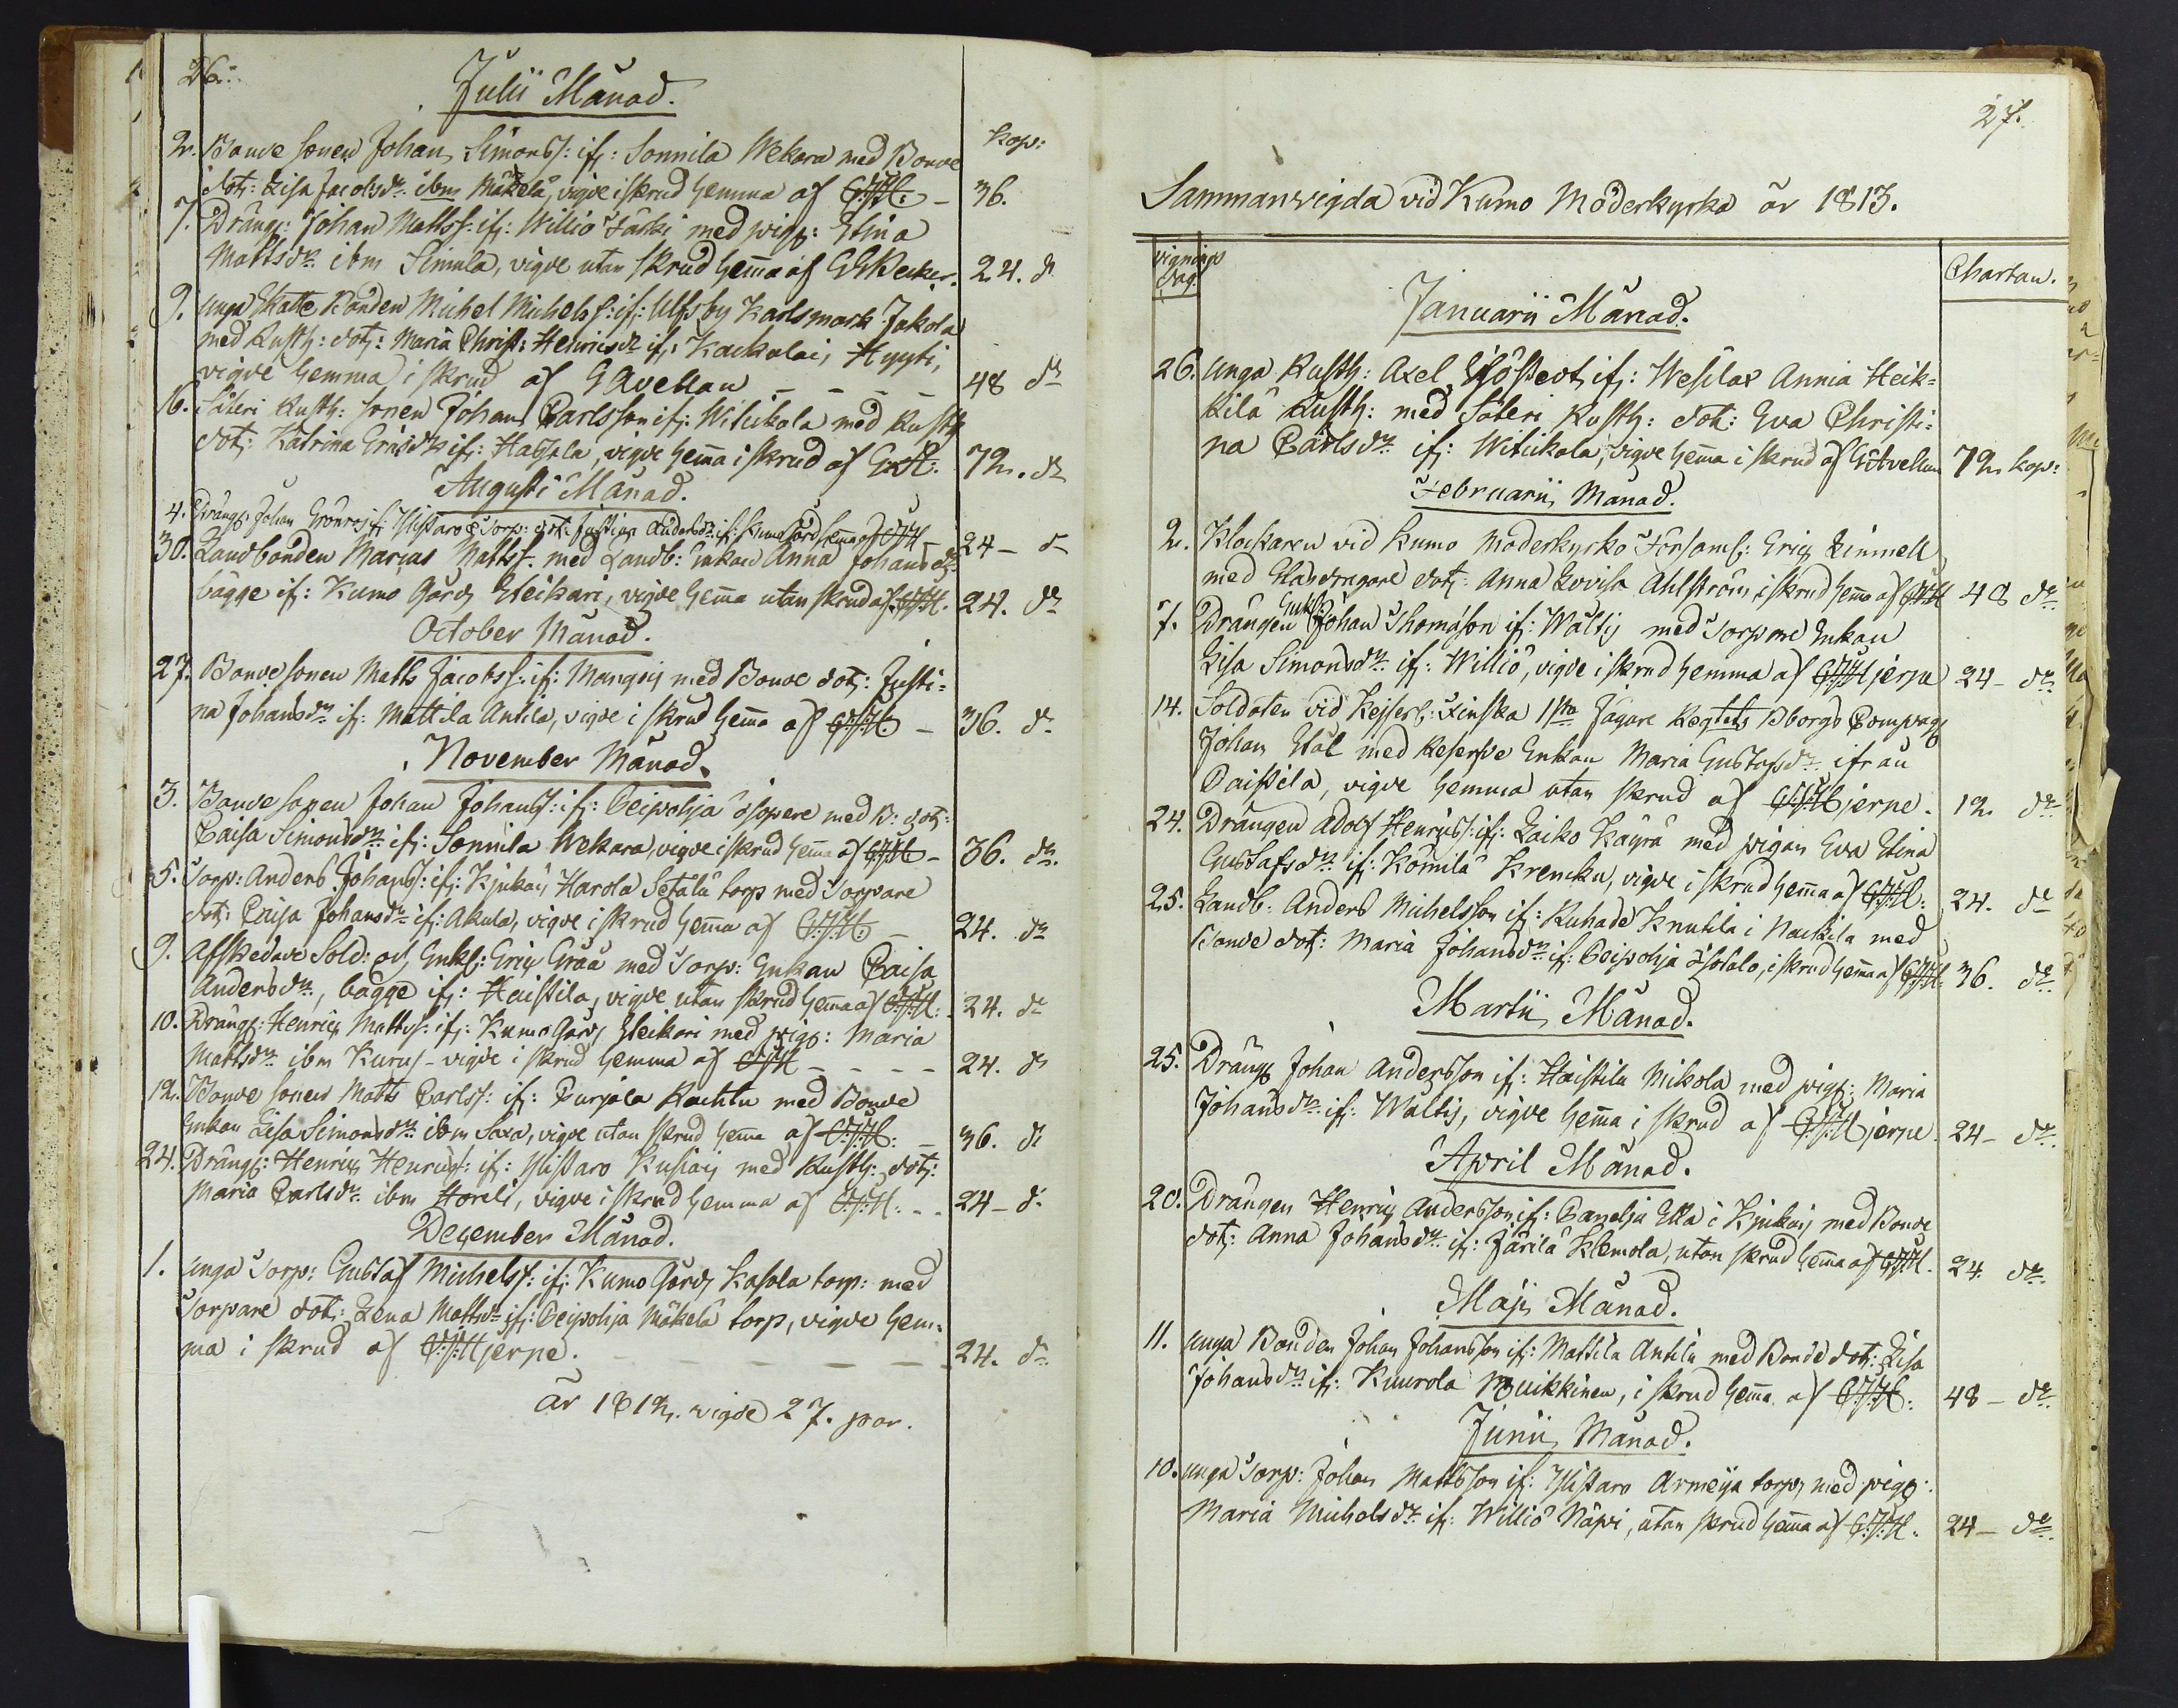 26.
Julii Månad.
kop:
2. Bonde sonen Johan Simonss: ifr: Sonnila Wekara med Bonde
dotr: Lisa Jacobsdr ibm Mäkelä, vigde i skrud hemma af G.J.H. – 36.
7. Dräng: Johan Mattss: ifr: Williö Fäski med pig: Stina
Mattsdr. ibm Simula, vigde utan skrud hema af Becker. 24. dr
9. unga Skatte Bonden Michel Michelss: ifr: Ulfsby Karlsmark Jakola
med Rusth: dotr: Maria Christ: Henricsdr ifr: Kackulais Hyyti,
vigde hemma i skrud af GAvellan – – – – 48 dr
16. Säteri Rusth: sonen Johan Carlsson ifr: Witikkala med Rusth
dotr: Katrina Ericsdr ifr: Haistila, vigde hema i skrud af 72. dr
Augusti Månad.
4. Dräng Johan Grönros ifr: Ylistaro & Torp: dotr: Justina Andersdr ifr: Kumo Gård, hema af GJH – 24 – dr
30. Landbonden Marcus Mattss. med Landb: Enkan Anna Johansdr.
bägge ifr: Kumo Gård Steikari, vigde hema utan skrud af G.J.H. 24. dr
October Månad.
27. Bonde sonen Matts Jacobss: ifr: Mangoij med Bonde dotr: Justi=
na Johansdr ifr: Mattila Antila, vigde i skrud hema af G.J.H. – 36. dr
November Månad.
3. Bonde sonen Johan Johanss: ifr: Peipohja Isopere med B: dotr:
Caisa Simonsdr ifr: Sonnila Wekara, vigde i skrud hema af G.J.H – 36. dr.
5. Torp: Anders Johanss: ifr: Kjukais Harola Setälä torp med Torpare
dotr: Caisa Johansdr ifr: Akula, vigde i skrud hema af G.J.H. – 24. dr
9. Afskedade Sold: och Enkl: Eric Gråå med Torp: Enkan Caisa
Andersdr, bägge ifr: Haistila, vigde utan skrud hema af G.J.H. – 24. dr
10. Dräng: Henric Mattss: ifr: Kumo Gård Steikari med pig: Maria
Mattsdr ibm Kurus – vigde i skrud hemma af GJH – – – – 24. dr
12. Bonde sonen Matts Carlss: ifr: Purjala Rachtu med Bonde
Enkan Lisa Simonsdr ibm Saxa, vigde utan skrud hema af G.J.H. – 36. dr
24. Dräng: Henric Henricss: ifr: Ylistaro Kusiais med Rusth: dotr:
Maria Carlsdr ibm Horeli, vigde i skrud hemma af G.J.H. – – 24 – dr
December Månad.
1. unga Torp: Gustaf Michelss: ifr: Kumo Gård Kasola torp: med
Torpare dotr: Lena Mattsdr ifr: Peipohja Mäkelä torp, vigde hem=
ma i skrud af G:J:Hjerpe. – – – – – – 24. dr
år 1812. vigde 27. par.
27.
Sammanvigda vid Kumo Moderkyrka år 1813.
vignings
dag.
Chartan.
Januarii Månad.
26. unga Rusth: Axel Sjöstedt ifr: Wesilax Annia Heik=
kilä Rusth: med Säteri Rusth: dotr: Eva Christi=
na Carlsdr ifr: Witikkala, vigde hema i skrud af GAvellan 72 kop:
Februarii Månad.
2. Klockaren vid Kumo Moderkyrko Församl: Eric Linnell
med Glasdragare dotr: Anna Lovisa Ahlström i skrud hema af GJH 48 dr.
7. Drängen Enkl Johan Thomasson ifr: Wältij med Torpare Enkan
Lisa Simonsdr ifr: Williö, vigde i skrud hemma af G:J:Hjerpe 24 – dr.
14. Soldaten vid Kejserl: Finska 1sta Jägare Regtets Bborgs Compag
Johan Stål med Reserve Enkan Maria Gustafsdr ifrån
Paistila, vigde hemma utan skrud af G:J:Hjerpe. 12 dr
24. Drängen Adolf Henricss: ifr: Laiko Käyrä med pigan Eva Stina
Gustafsdr ifr: Kömilä Krencku, vigde i skrud hema af G.J.H. 24. dr
25. Landb: Anders Michelsson ifr: Kuhade Knutila i Nackila med
Bonde dotr: Maria Johansdr ifr: Peipohja Isotalo, i skrud hema af G.J.H. 36. dr.
Martii Månad.
25. Dräng Johan Andersson ifr: Haistila Mikola med pig: Maria
Johansdr ifr: Wältij, vigde hema i skrud af G:J:Hjerpe. 24 – dr.
April Månad.
20. Drängen Henric Andersson ifr: Panelja Ella i Kjukais med Bonde
dotr: Anna Johansdr ifr: Järilä Klemola, utan skrud hema af G.J.H. 24. dr.
Maji Månad.
11. unga Bonden Johan Johansson ifr: Mattila Antila med Bonde dotr: Lisa
Johansdr ifr: Kuurola Muikkinen, i skrud hema af G.J.H. 48 – dr.
Junii Månad.
10. unga Torp: Johan Mattsson ifr: Ylistaro Armeija torp, med pig:
Maria Michelsdr ifr: Williö Näpi, utan skrud hema af G.J.H. 24 – dr.